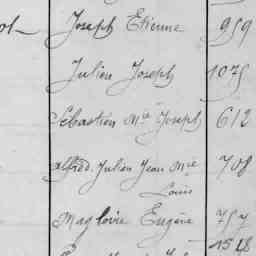 Joseph Etienne 959
Julien Joseph 1075
Sébastien Mie Joseph 612
Alfred Julien Jean Mie 708
Louis
Magloire Eugène 757
1518